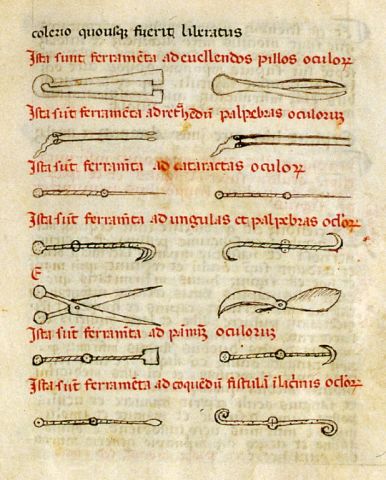 colerio quousqꝫ fuerit liberatus
Ista sunt ferramēta ad euellendos pillos oculoꝝ
Ista sūt ferram̄ta ad palpebras oculorum
Ista sūt ferram̄ta ad cataractas oculoꝝ
Ista sūt ferram̄ta ad ungulas et palpebras ocl̄oꝝ
E
Ista sūt ferram̄ta ad pānūꝫ oculorum
Ista sūt ferramēta ad coquēdū fistulā ī lac̄mis ocl̄oꝝ